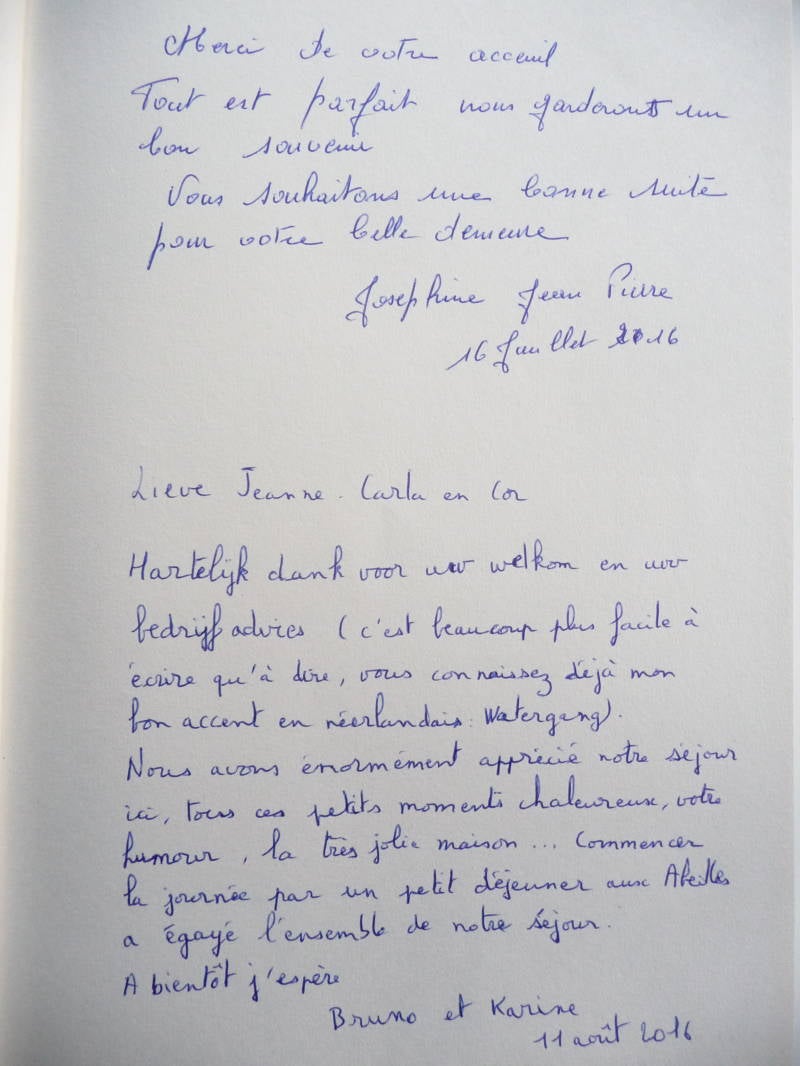 Merci de votre acceuil
Tout est parfait nous garderons un
bon souvenir
Vous souhaitons une bonne suite
pour votre belle demeure
Josephine Jean Pierre
16 Juillet 2016
Lieve Jeanne. Carla en Cor
Hartelijk dank voor uw welkom en uw
bedrijf advies (c'est beaucoup plus facile à
écrire qu'à dire, vous connaissez déjà mon
bon accent en néerlandais : Watergang).
Nous avons énormément apprécié notre séjour
ici, tous ces petits moments chaleureux, votre
humour, la très jolie maison... Commencer
la journée par un petit déjeuner aux Abeilles
a égayé l'ensemble de notre séjour.
A bientôt j'espère
Bruno et Karine
11 août 2016